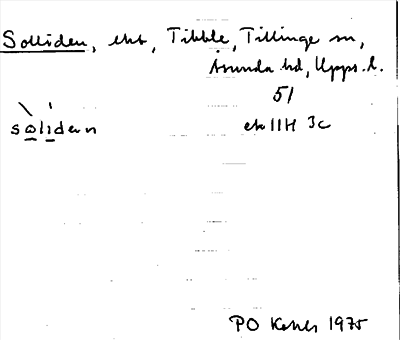 Solliden, Tibble, Tillinge sn,
Åsunda hd, Upps. l.
51
solidan ek 11H 3c
PO 1975